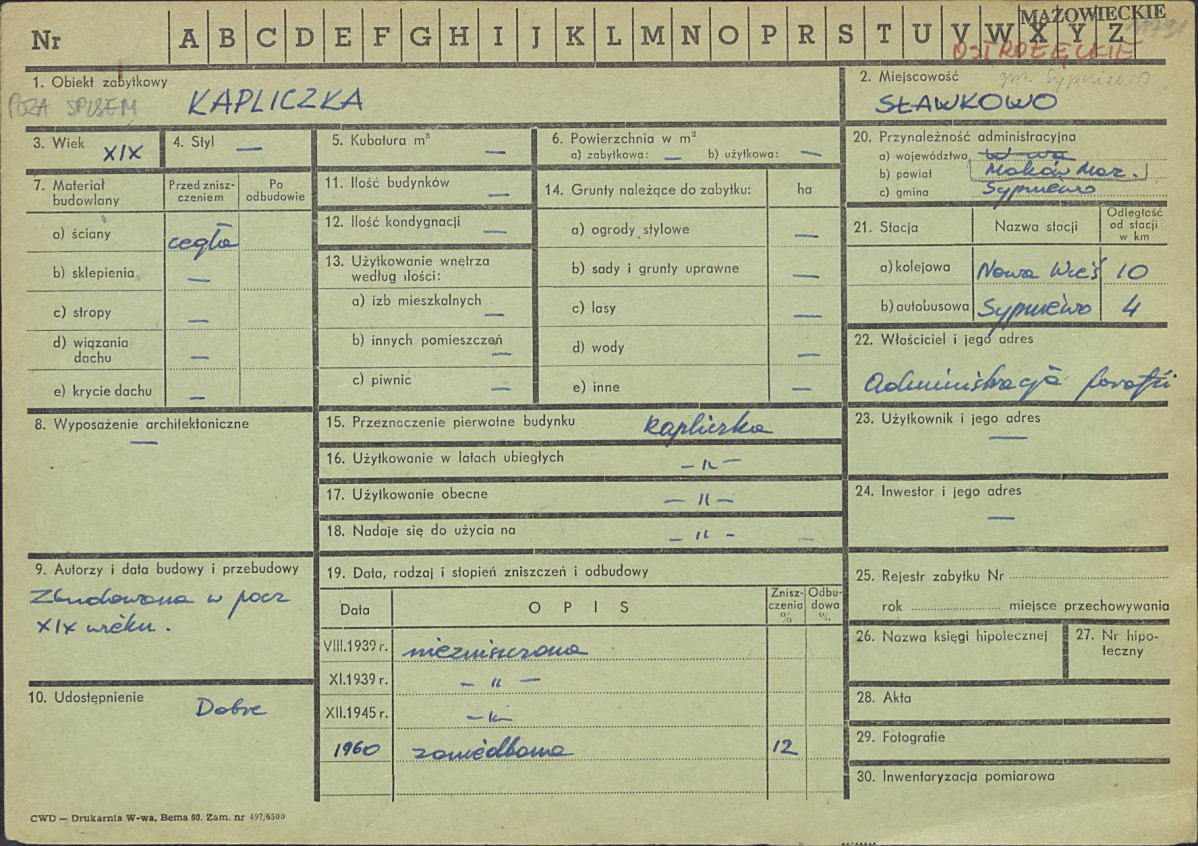 MAZOWIECKIE
Nr A B C D E F G H I J K L M N O P R S T U V W X Y Z
OSTROŁĘCKIE
1. Obiekt zabytkowy
POZA SPISEM
KAPLICZKA
2. Miejscowość
gm. Sypniewo
SŁAWKOWO
3. Wiek XIX
4. Styl —
5. Kubatura m³ —
6. Powierzchnia w m²
a) zabytkowa: — b) użytkowa: —
20. Przynależność administracyjna
a) województwo W-wa
b) powiat Maków Maz.
c) gmina Sypniewo
7. Materiał budowlany
Przed zniszczeniem
Po odbudowie
a) ściany cegła
b) sklepienia —
c) stropy —
d) wiązania dachu —
e) krycie dachu —
11. Ilość budynków —
12. Ilość kondygnacji —
13. Użytkowanie wnętrza
według ilości:
a) izb mieszkalnych —
b) innych pomieszczeń —
c) piwnic —
14. Grunty należące do zabytku: ha
a) ogrody stylowe —
b) sady i grunty uprawne —
c) lasy —
d) wody —
e) inne —
21. Stacja Nazwa stacji Odległość od stacji w km
a) kolejowa Nowa Wieś 10
b) autobusowa Sypniewo 4
22. Właściciel i jego adres
Administracja parafii
8. Wyposażenie architektoniczne
—
15. Przeznaczenie pierwotne budynku kapliczka
16. Użytkowanie w latach ubiegłych — „ —
17. Użytkowanie obecne — „ —
18. Nadaje się do użycia na — „ — —
23. Użytkownik i jego adres
—
24. Inwestor i jego adres
—
9. Autorzy i data budowy i przebudowy
Zbudowana w pocz
XIX wieku.
10. Udostępnienie
Dobre
19. Data, rodzaj i stopień zniszczeń i odbudowy
Data OPIS Zniszczenia % Odbudowa %
VIII.1939 r. niezniszczona
XI.1939 r. — „ —
XII.1945 r. — „ —
1960 zaniedbana 12
25. Rejestr zabytku Nr
rok miejsce przechowywania
26. Nazwa księgi hipotecznej
27. Nr hipoteczny
28. Akta
29. Fotografie
30. Inwentaryzacja pomiarowa
CWD — Drukarnia W-wa, Bema 60. Zam. nr 497/6500